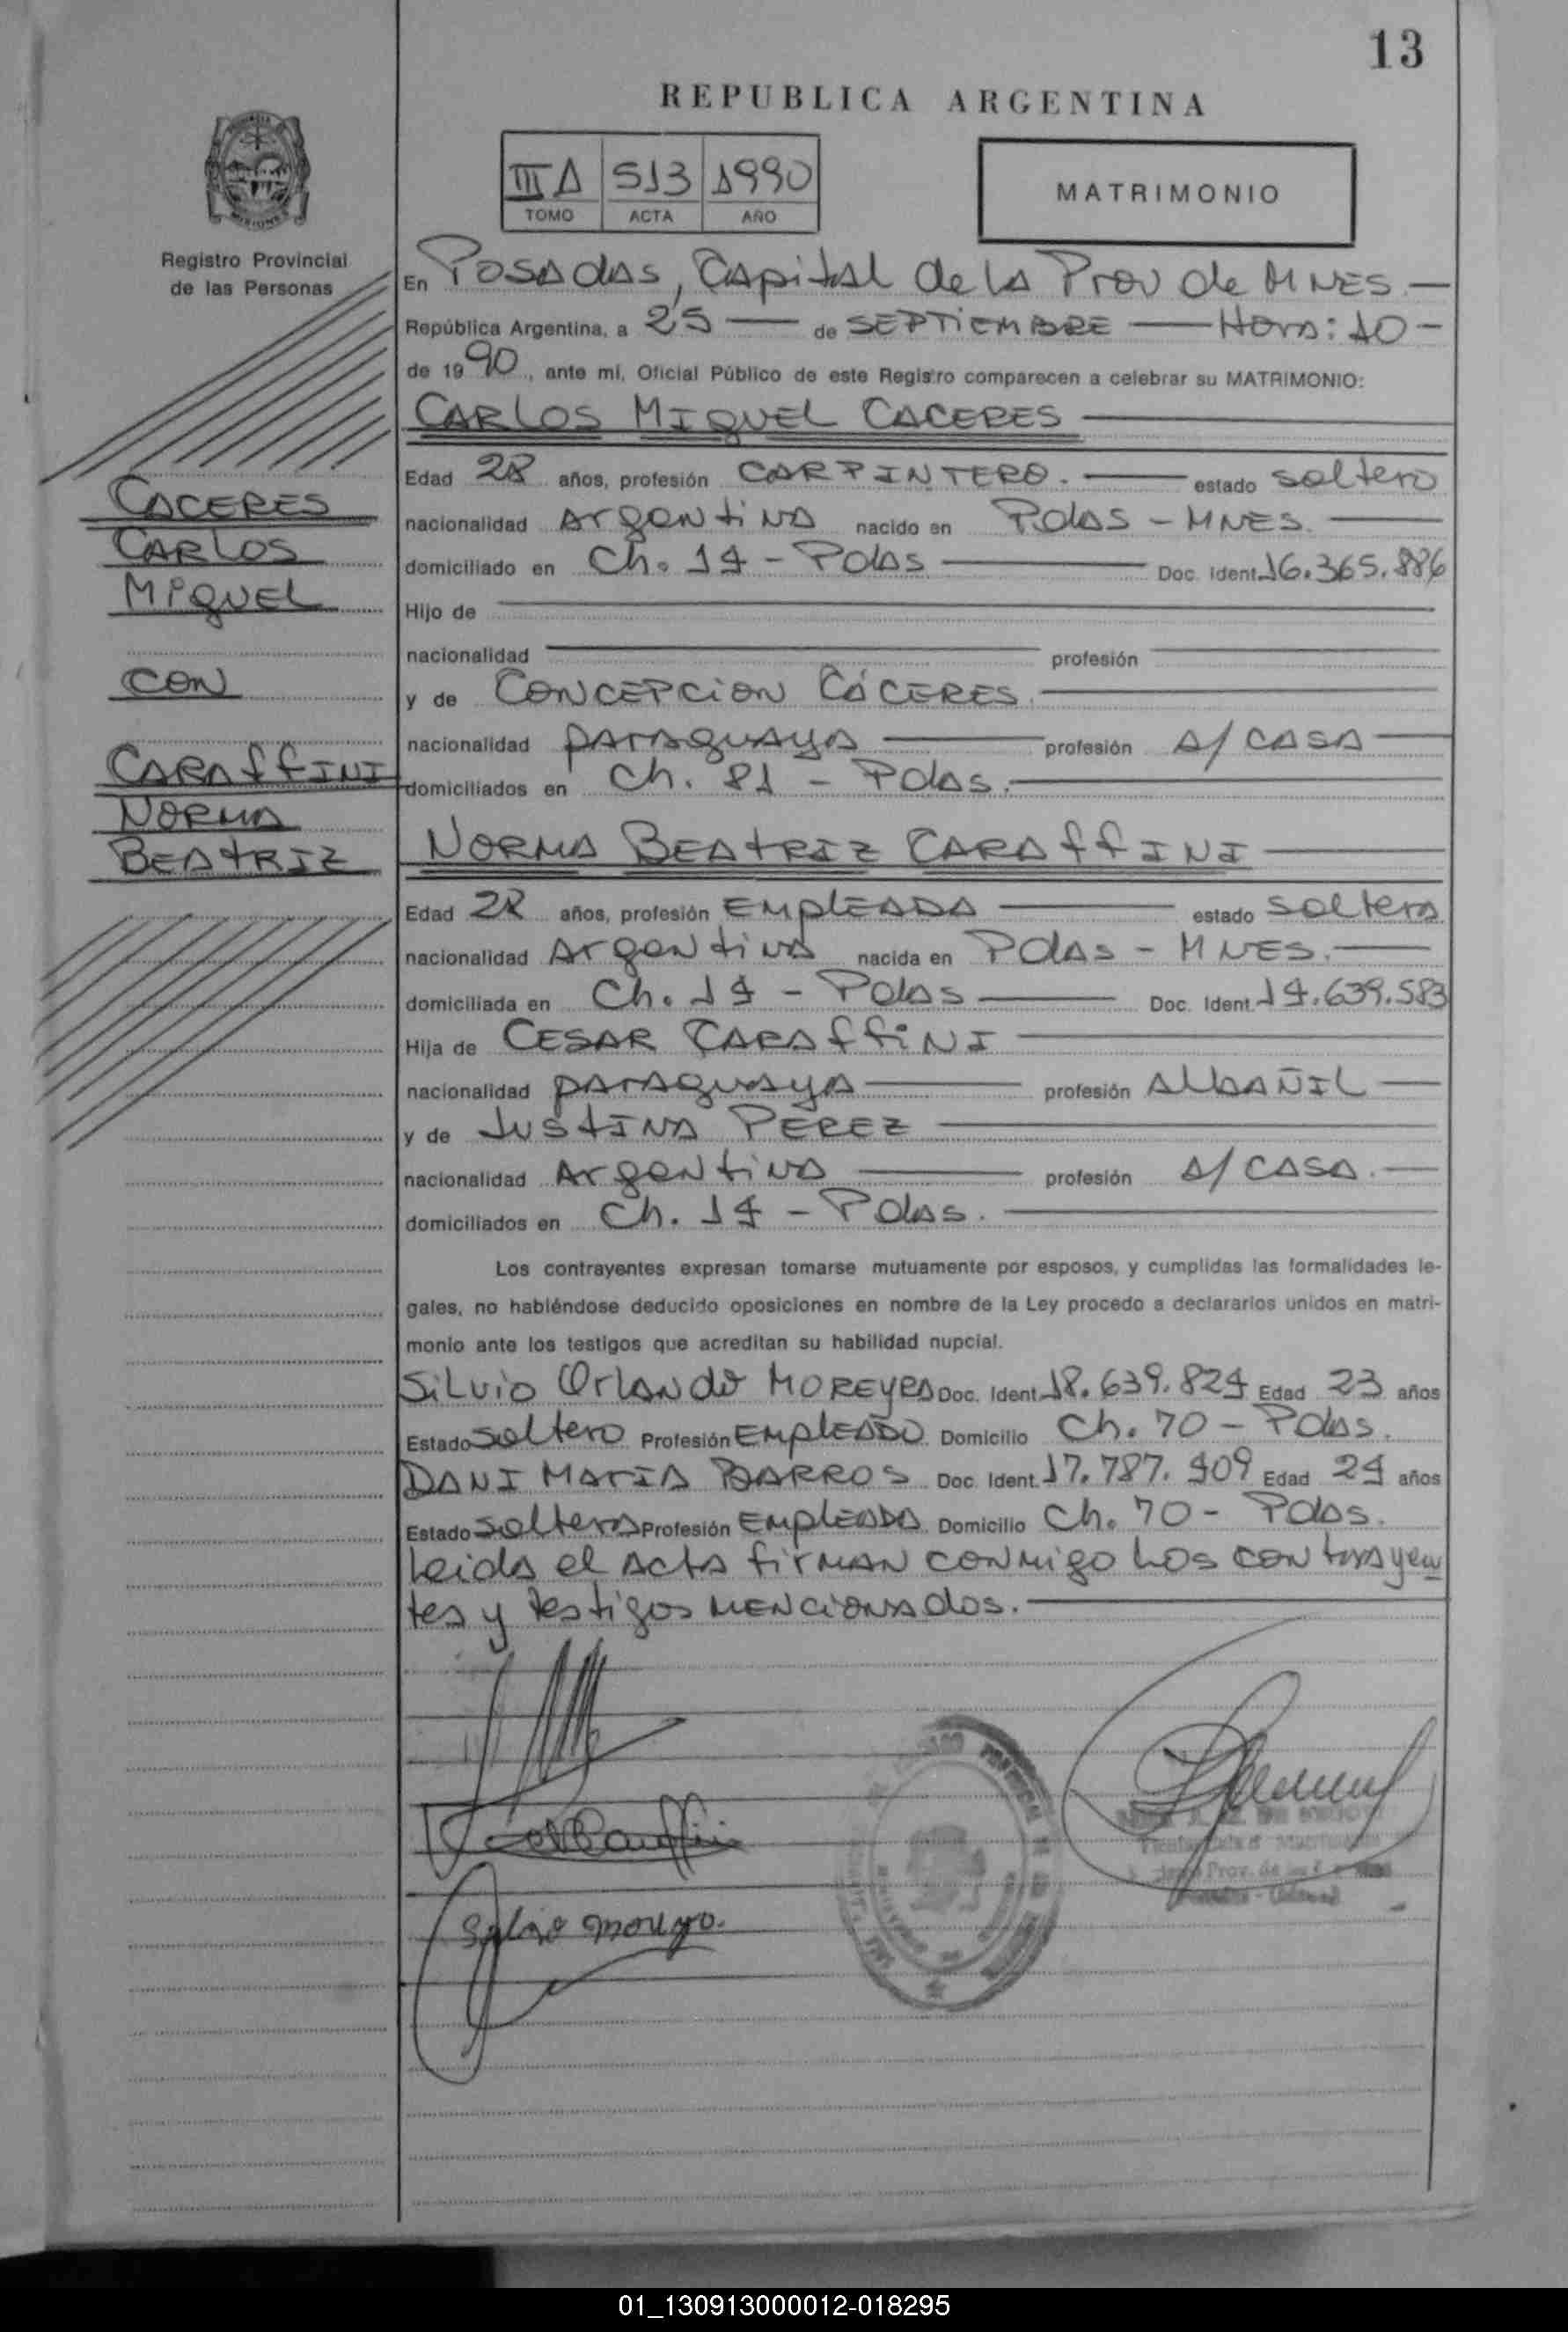 13
REPUBLICA ARGENTINA
III A 513 1990
TOMO ACTA AÑO
MATRIMONIO
Registro Provincial
de las Personas
En Posadas, Capital de la Prov de MNES.—
República Argentina, a 25 — de SEPTIEMBRE — Hora: 10 —
de 1990, ante mí, Oficial Público de este Registro comparecen a celebrar su MATRIMONIO:
CARLOS MIGUEL CACERES
Edad 28 años, profesión CARPINTERO. estado soltero
nacionalidad Argentina nacido en Pdas - MNES.
domiciliado en Ch. 14 - Pdas Doc. Ident. 16.365.886
Hijo de
nacionalidad profesión
y de CONCEPCION CÁCERES.
nacionalidad paraguaya profesión A/ CASA
domiciliados en Ch. 81 - Pdas.
CACERES
CARLOS
MIGUEL
CON
CARAFFINI
NORMA
BEATRIZ
NORMA BEATRIZ CARAFFINI
Edad 28 años, profesión EMPLEADA estado soltera
nacionalidad Argentina nacida en Pdas - MNES.
domiciliada en Ch. 14 - Pdas Doc. Ident. 14.639.583
Hija de CESAR CARAFFINI
nacionalidad paraguaya profesión ALBAÑIL
y de JUSTINA PEREZ
nacionalidad Argentina profesión A/ CASA.
domiciliados en Ch. 14 - Pdas.
Los contrayentes expresan tomarse mutuamente por esposos, y cumplidas las formalidades le-
gales, no habiéndose deducido oposiciones en nombre de la Ley procedo a declararlos unidos en matri-
monio ante los testigos que acreditan su habilidad nupcial.
Silvio Orlando MOREYRA Doc. Ident. 18.639.824 Edad 23 años
Estado soltero Profesión EMPLEADO Domicilio Ch. 70 - Pdas.
DANI MARIA BARROS Doc. Ident. 17.787.409 Edad 24 años
Estado soltera Profesión EMPLEADA Domicilio Ch. 70 - Pdas.
Leida el acta firman conmigo los contrayen
tes y testigos mencionados.
01_130913000012-018295